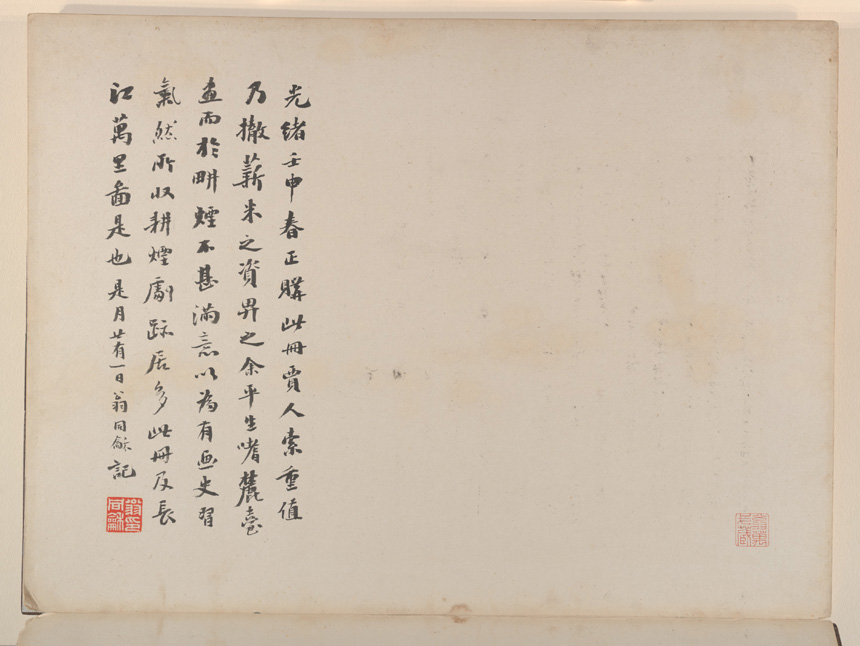 光緒壬申春正購此冊賈人索重值
乃撤薪米之資畀之余平生嗜麓臺
畫而於畊煙不甚滿意以為有画史習
氣然所收耕煙劇跡居多此冊及長
江萬里圖是也是月廿有一日翁同龢記
翁同龢印
翁萬戈藏